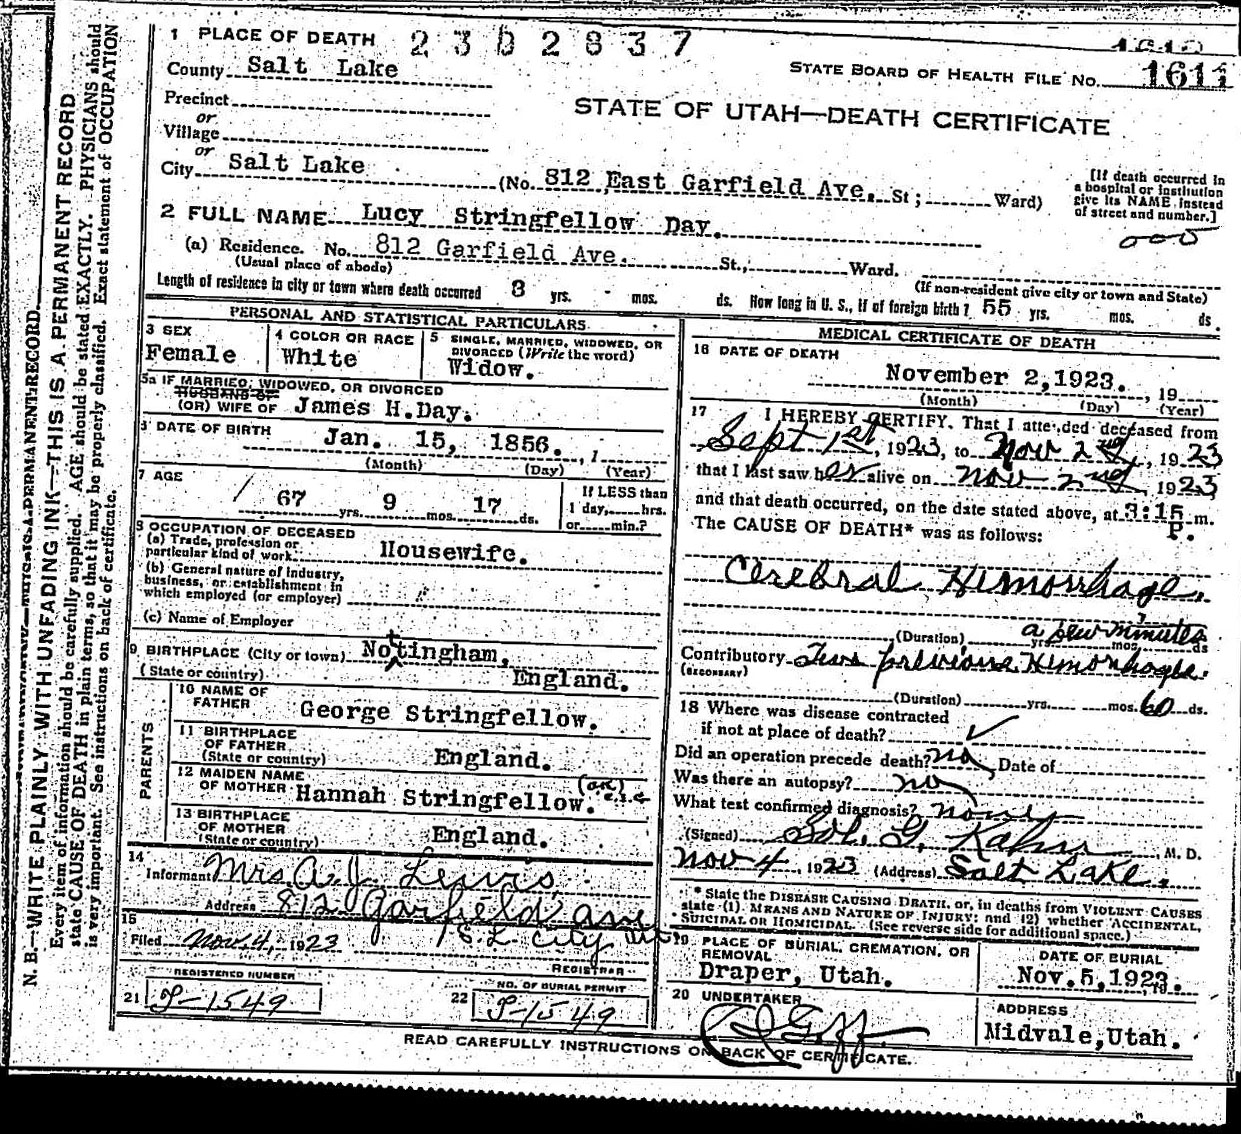 1 PLACE OF DEATH 2302837
1612
County Salt Lake
STATE BOARD OF HEALTH FILE No. 1611
Precinct
or
Village
STATE OF UTAH—DEATH CERTIFICATE
or
City Salt Lake (No. 812 East Garfield Ave. St; Ward)
[If death occurred in a hospital or institution give its NAME instead of street and number.]
2 FULL NAME Lucy Stringfellow Day.
(a) Residence. No. 812 Garfield Ave. St., Ward.
(Usual place of abode) (If non-resident give city or town and State)
Length of residence in city or town where death occurred 3 yrs. - mos. ds. How long in U. S., if of foreign birth? 55 yrs. mos. ds.
PERSONAL AND STATISTICAL PARTICULARS
3 SEX Female
4 COLOR OR RACE White
5 SINGLE, MARRIED, WIDOWED, OR DIVORCED (Write the word) Widow.
5a IF MARRIED, WIDOWED, OR DIVORCED
HUSBAND OF
(OR) WIFE OF James H.Day.
DATE OF BIRTH Jan. 15, 1856. , 1
(Month) (Day) (Year)
7 AGE 67 yrs. 9 mos. 17 ds.
If LESS than 1 day, hrs. or min.?
8 OCCUPATION OF DECEASED
(a) Trade, profession or particular kind of work. Housewife.
(b) General nature of industry, business, or establishment in which employed (or employer)
(c) Name of Employer
9 BIRTHPLACE (City or town) Nottingham,
(State or country) England.
PARENTS
10 NAME OF FATHER George Stringfellow.
11 BIRTHPLACE OF FATHER (State or country) England.
12 MAIDEN NAME OF MOTHER Hannah Stringfellow. (ok)
13 BIRTHPLACE OF MOTHER (State or country) England.
14
Informant Mrs A. J. Lewis
Address 812 Garfield ave
S. L. City Ut
15
Filed Nov. 4, 1923
REGISTRAR
21 REGISTERED NUMBER
22 NO. OF BURIAL PERMIT
MEDICAL CERTIFICATE OF DEATH
16 DATE OF DEATH
November 2,1923. , 19
(Month) (Day) (Year)
17 I HEREBY CERTIFY. That I attended deceased from
Sept 1st, 1923, to Nov 2nd, 1923
that I last saw her alive on Nov 2nd, 1923
and that death occurred, on the date stated above, at 3:15 m.
P.
The CAUSE OF DEATH* was as follows:
Cerebral Hemorrhage.
a few minutes
(Duration) yrs. mos. ds
Contributory Two previous Hemorrhages.
(SECONDARY)
(Duration) yrs. mos. 60 ds.
18 Where was disease contracted
if not at place of death? ✓
Did an operation precede death? no Date of
Was there an autopsy? no
What test confirmed diagnosis? none
(Signed) Sol. G. Kahn M. D.
Nov 4, 1923 (Address) Salt Lake.
* State the DISEASE CAUSING DEATH, or, in deaths from VIOLENT CAUSES
state (1) MEANS AND NATURE OF INJURY; and (2) whether ACCIDENTAL,
SUICIDAL OR HOMICIDAL. (See reverse side for additional space.)
19 PLACE OF BURIAL, CREMATION, OR REMOVAL
Draper, Utah.
DATE OF BURIAL
Nov.5,1923. 19
20 UNDERTAKER
ADDRESS
Midvale,Utah.
READ CAREFULLY INSTRUCTIONS ON BACK OF CERTIFICATE.
N. B.—WRITE PLAINLY WITH UNFADING INK—THIS IS A PERMANENT RECORD
Every item of information should be carefully supplied. AGE should be stated EXACTLY. PHYSICIANS should
state CAUSE OF DEATH in plain terms, so that it may be properly classified. Exact statement of OCCUPATION
is very important. See instructions on back of certificate.